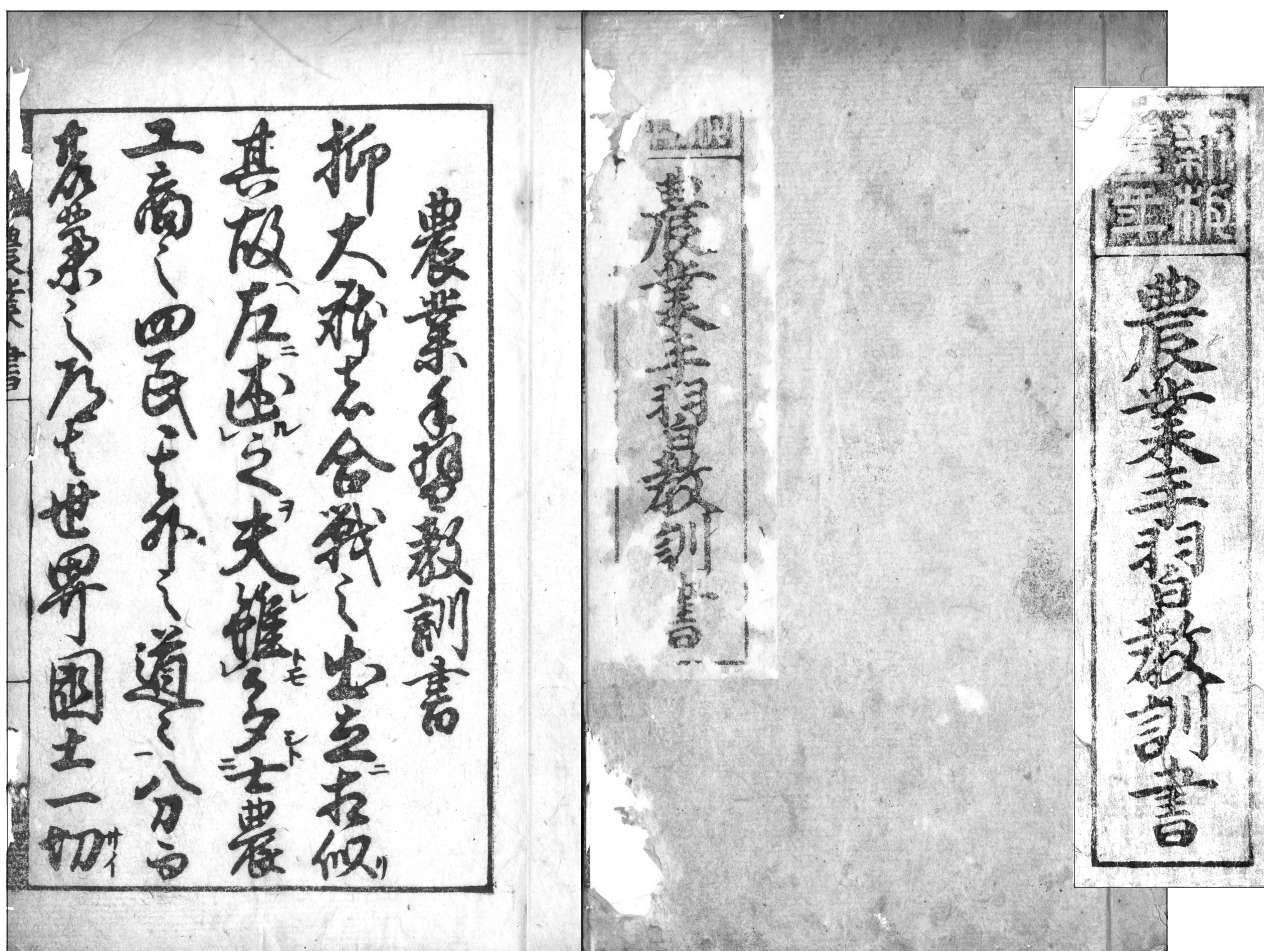 新板
農業手習教訓書
農業手習教訓書
農業手習教訓書
抑大者合戦之出立ニ相似リ
其故左ニ述ル之ヲ夫雖トモ多シト士農
工商之四民其外之道々分而
農業之道者世界國土一切サイ
農業書